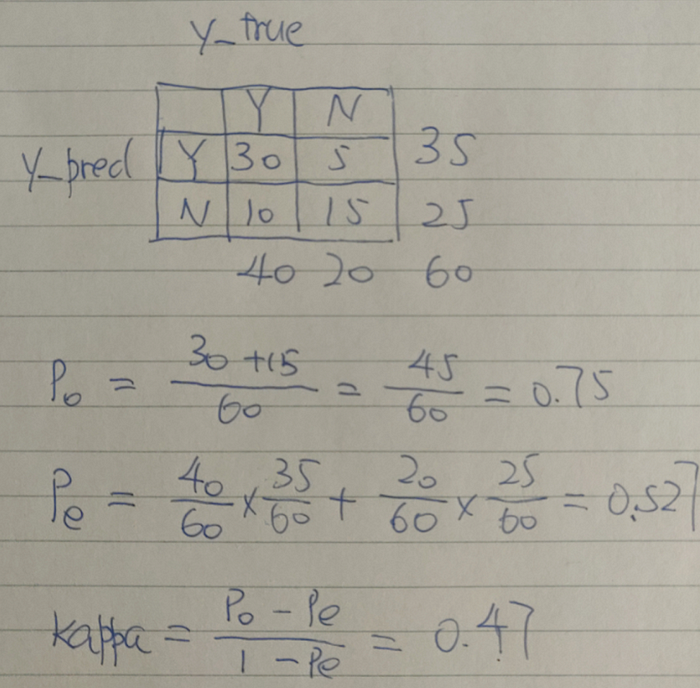 y_true
Y N
y_pred Y 30 5 35
N 10 15 25
40 20 60
Po = 30 + 15 / 60 = 45 / 60 = 0.75
Pe = 40/60 × 35/60 + 20/60 × 25/60 = 0.527
kappa = Po - Pe / 1 - Pe = 0.47